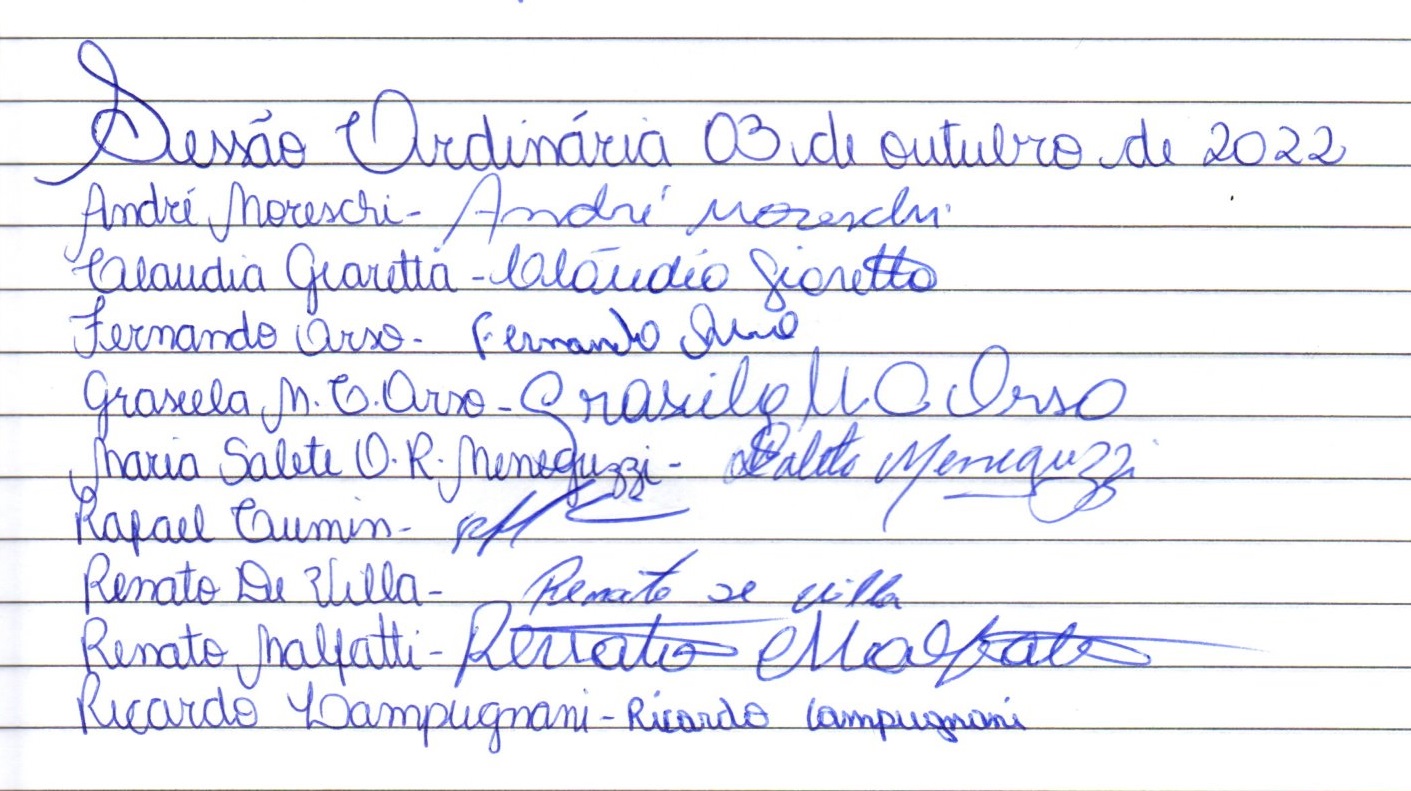 Sessão Ordinária 03 de outubro de 2022
André Moreschi - André Moreschi
Claudia Giaretta - Claudia Giaretta
Fernando Orso - Fernando Orso
Grasiela M. C. Orso - Grasiela M C Orso
Maria Salete O. R. Meneguzzi - Salete Meneguzzi
Rafael
Renato De Villa - Renato de villa
Renato Malfatti - Renato Malfatti
Ricardo Lampugnani - Ricardo Lampugnani